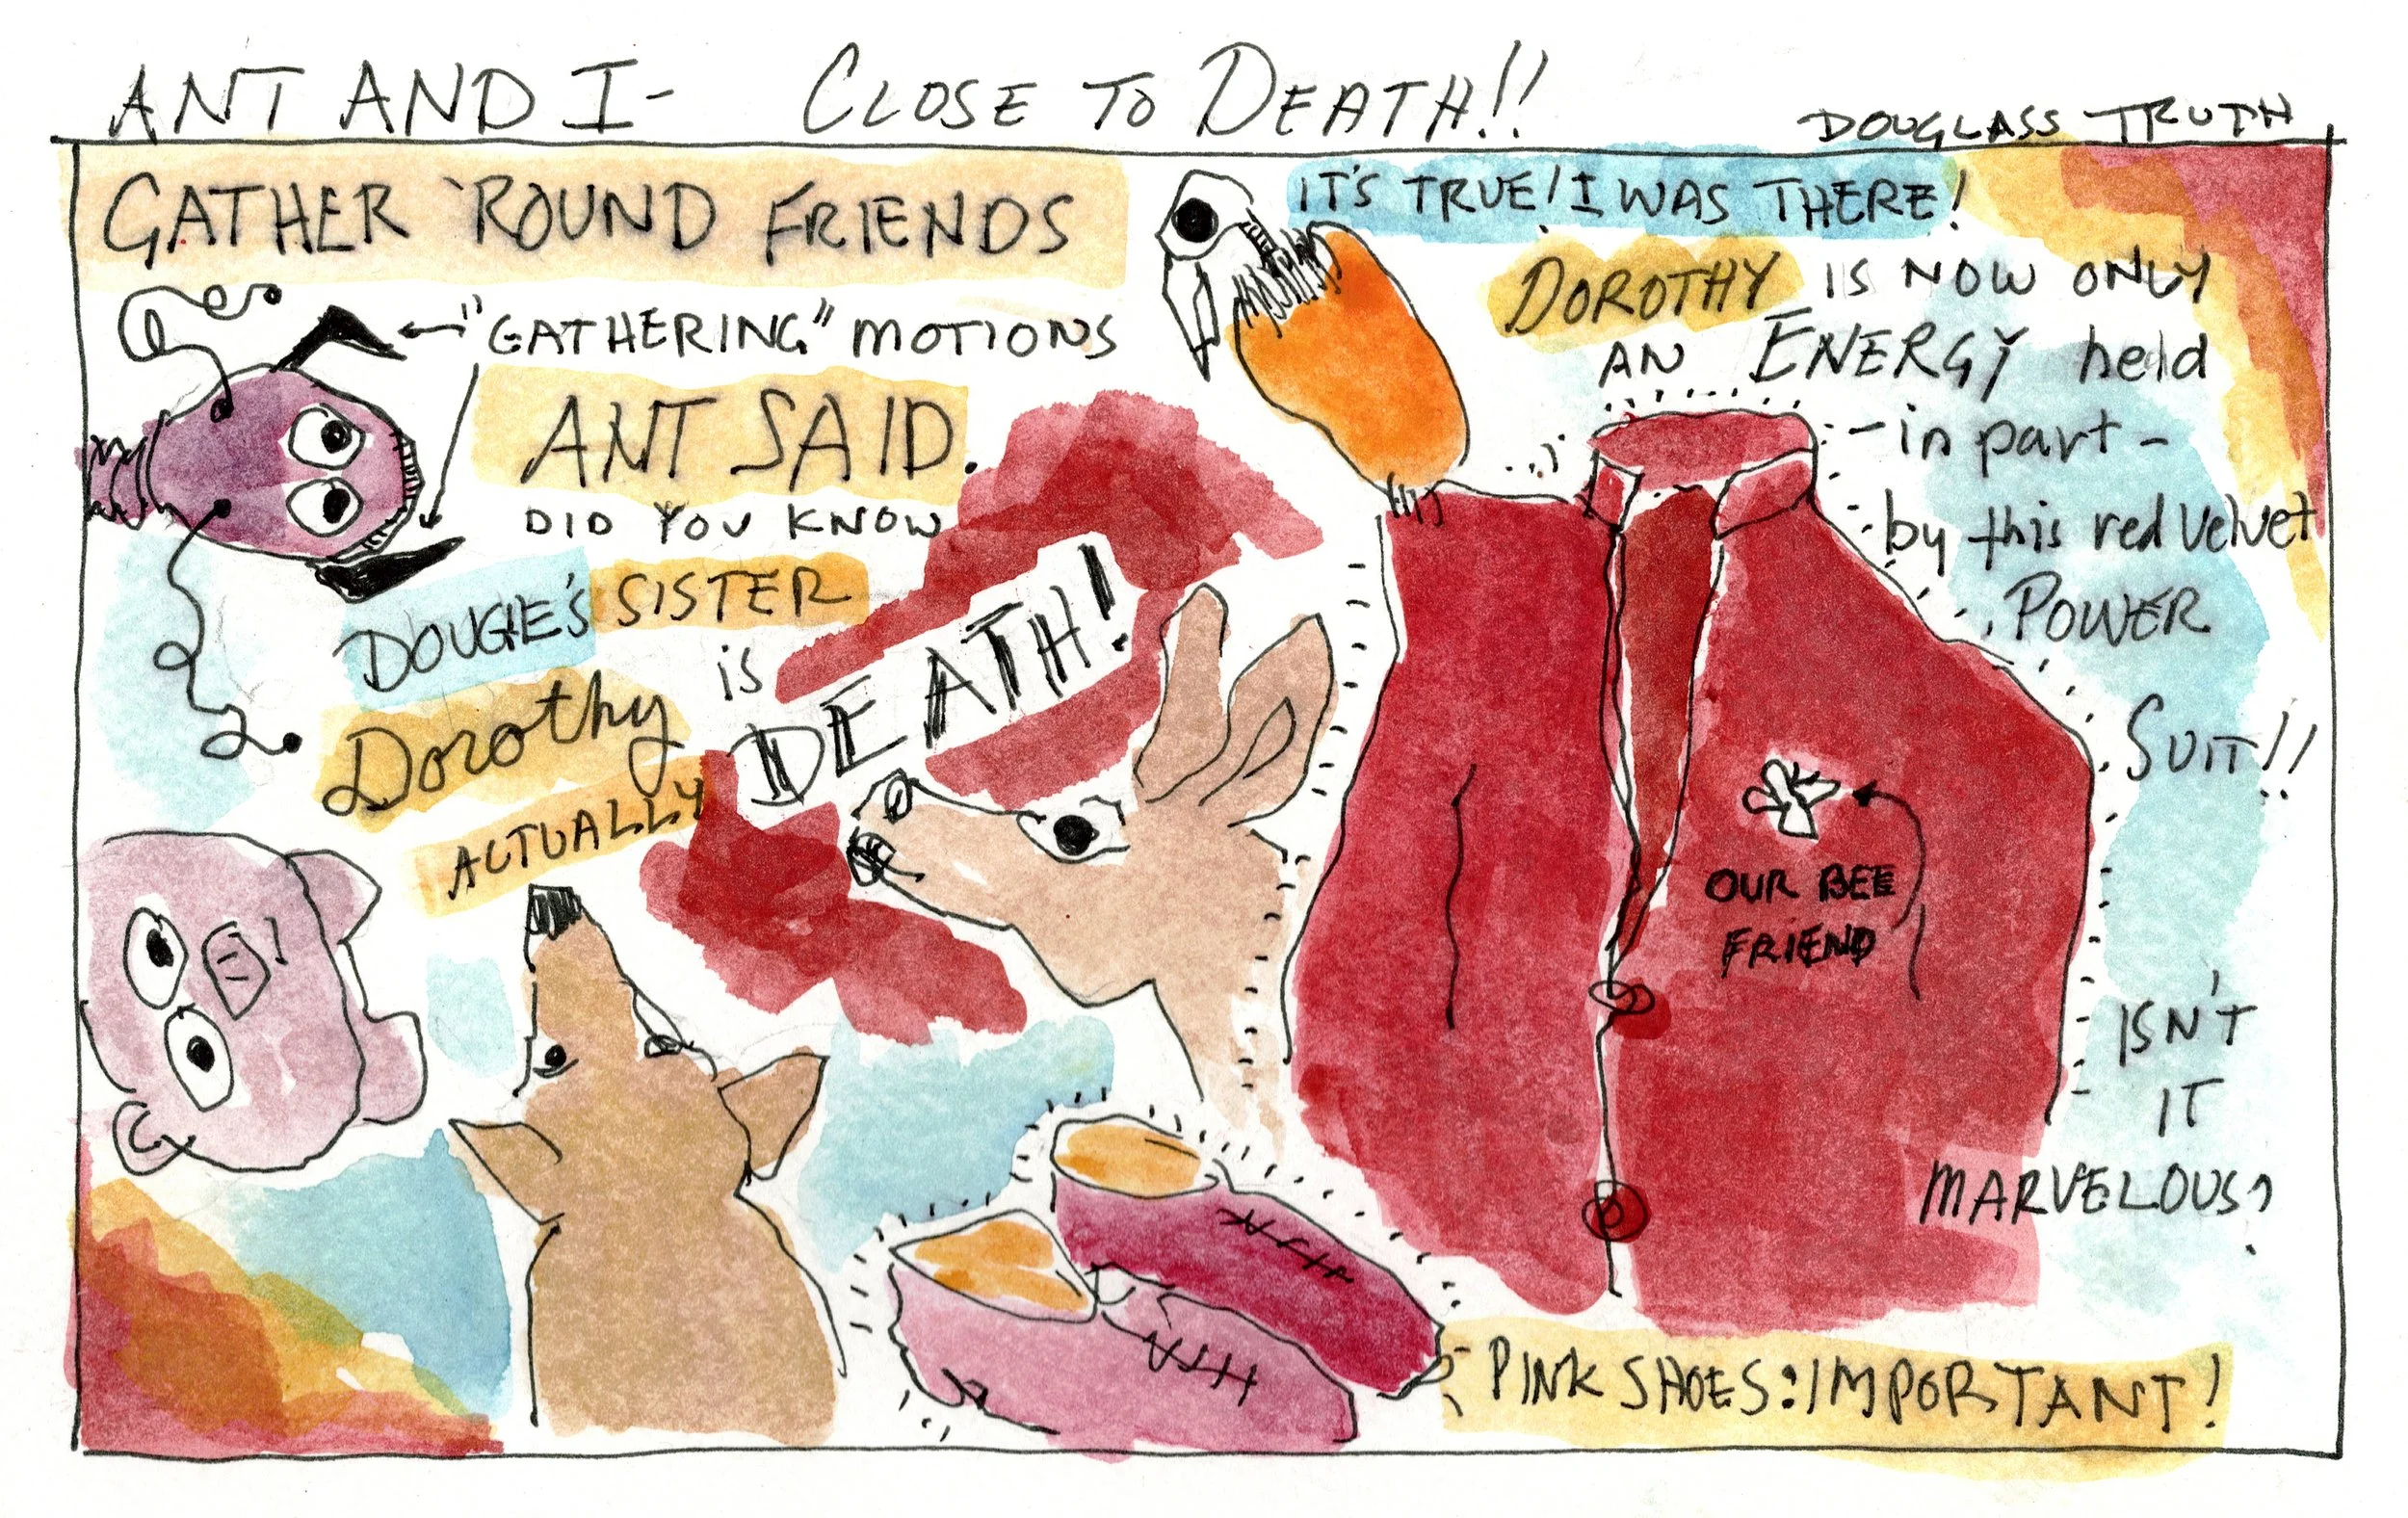 ANT AND I- CLOSE TO DEATH!!
DOUGLASS TRUTH
GATHER 'ROUND FRIENDS
"GATHERING" MOTIONS
ANT SAID.
DID YOU KNOW
DOUGIE'S SISTER
Dorothy is
DEATH!
ACTUALLY
IT'S TRUE! I WAS THERE!
DOROTHY IS NOW ONLY
AN ENERGY held
-in part-
by this red velvet
POWER
SUIT!!
OUR BEE
FRIEND
ISN'T
IT
MARVELOUS?
PINK SHOES: IMPORTANT!